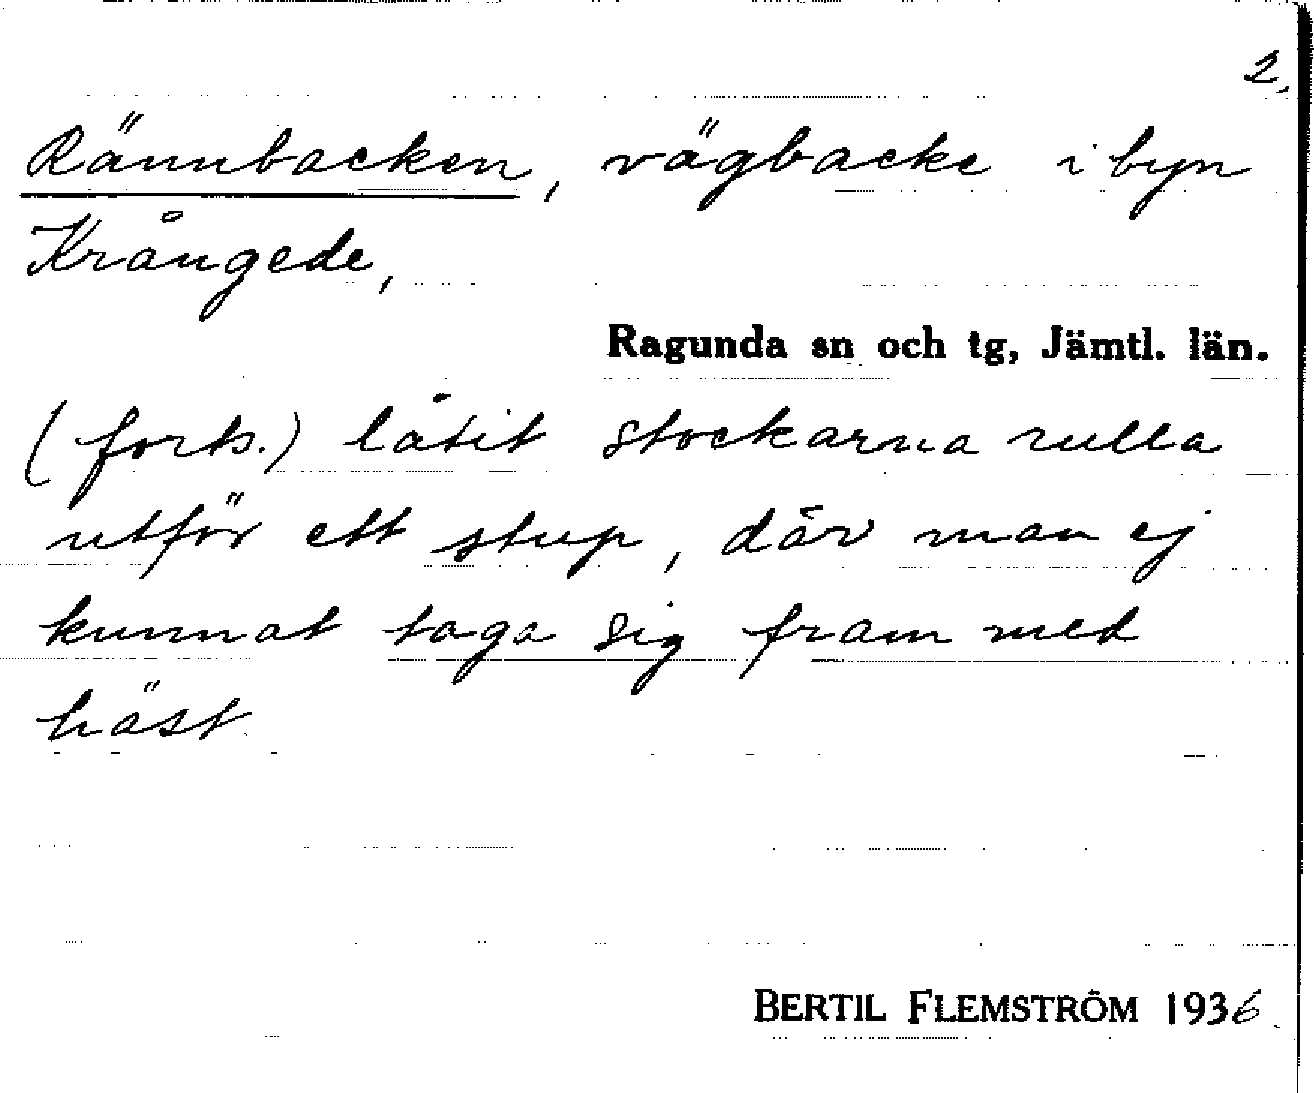 2.
Rännbacken, vägbacke i byn
Krångede,
Ragunda sn och tg, Jämtl. län.
(forts.) låtit stockarna rulla
utför ett stup, där man ej
kunnat taga sig fram med
häst
BERTIL FLEMSTRÖM 1936